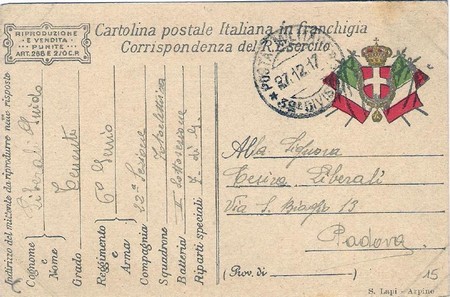 RIPRODUZIONE
E VENDITA
PUNITE
ART. 285 E 2/O C.P.
Cartolina postale Italiana in franchigia
Corrispondenza del R. Esercito
POSTA MILITARE
27.12.17
DIVIS
Alla Signora
Liberali
Via S. Biagio 13
Padova
(Prov. di
15
S. Lapi - Arpino
Indirizzo del mittente da riprodurre nelle risposte
Cognome e Nome Liberali Guido
Grado Tenente
Reggimento e Arma: 6° Genio
Compagnia 22a Sezione
Squadrone
Batteria
Riparti speciali